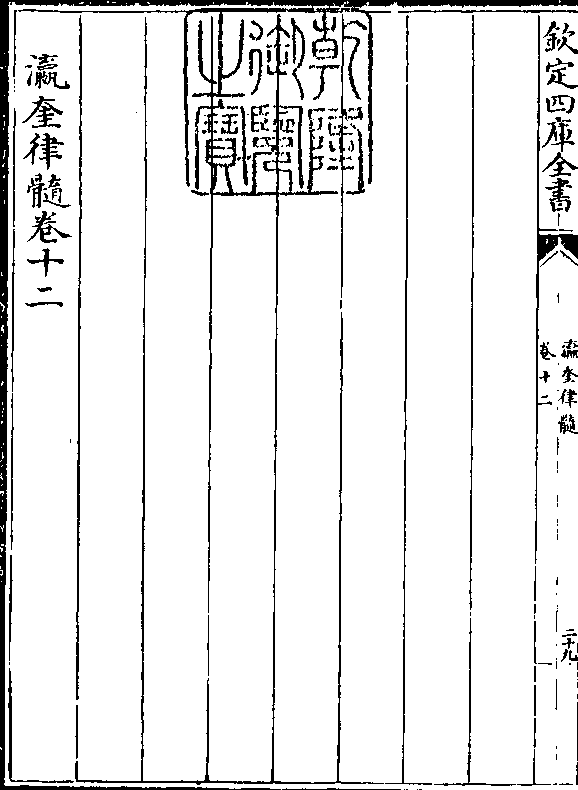 欽定四庫全書
瀛奎律髓
卷十二
二十九
乾隆御覽之寶
瀛奎律髓卷十二